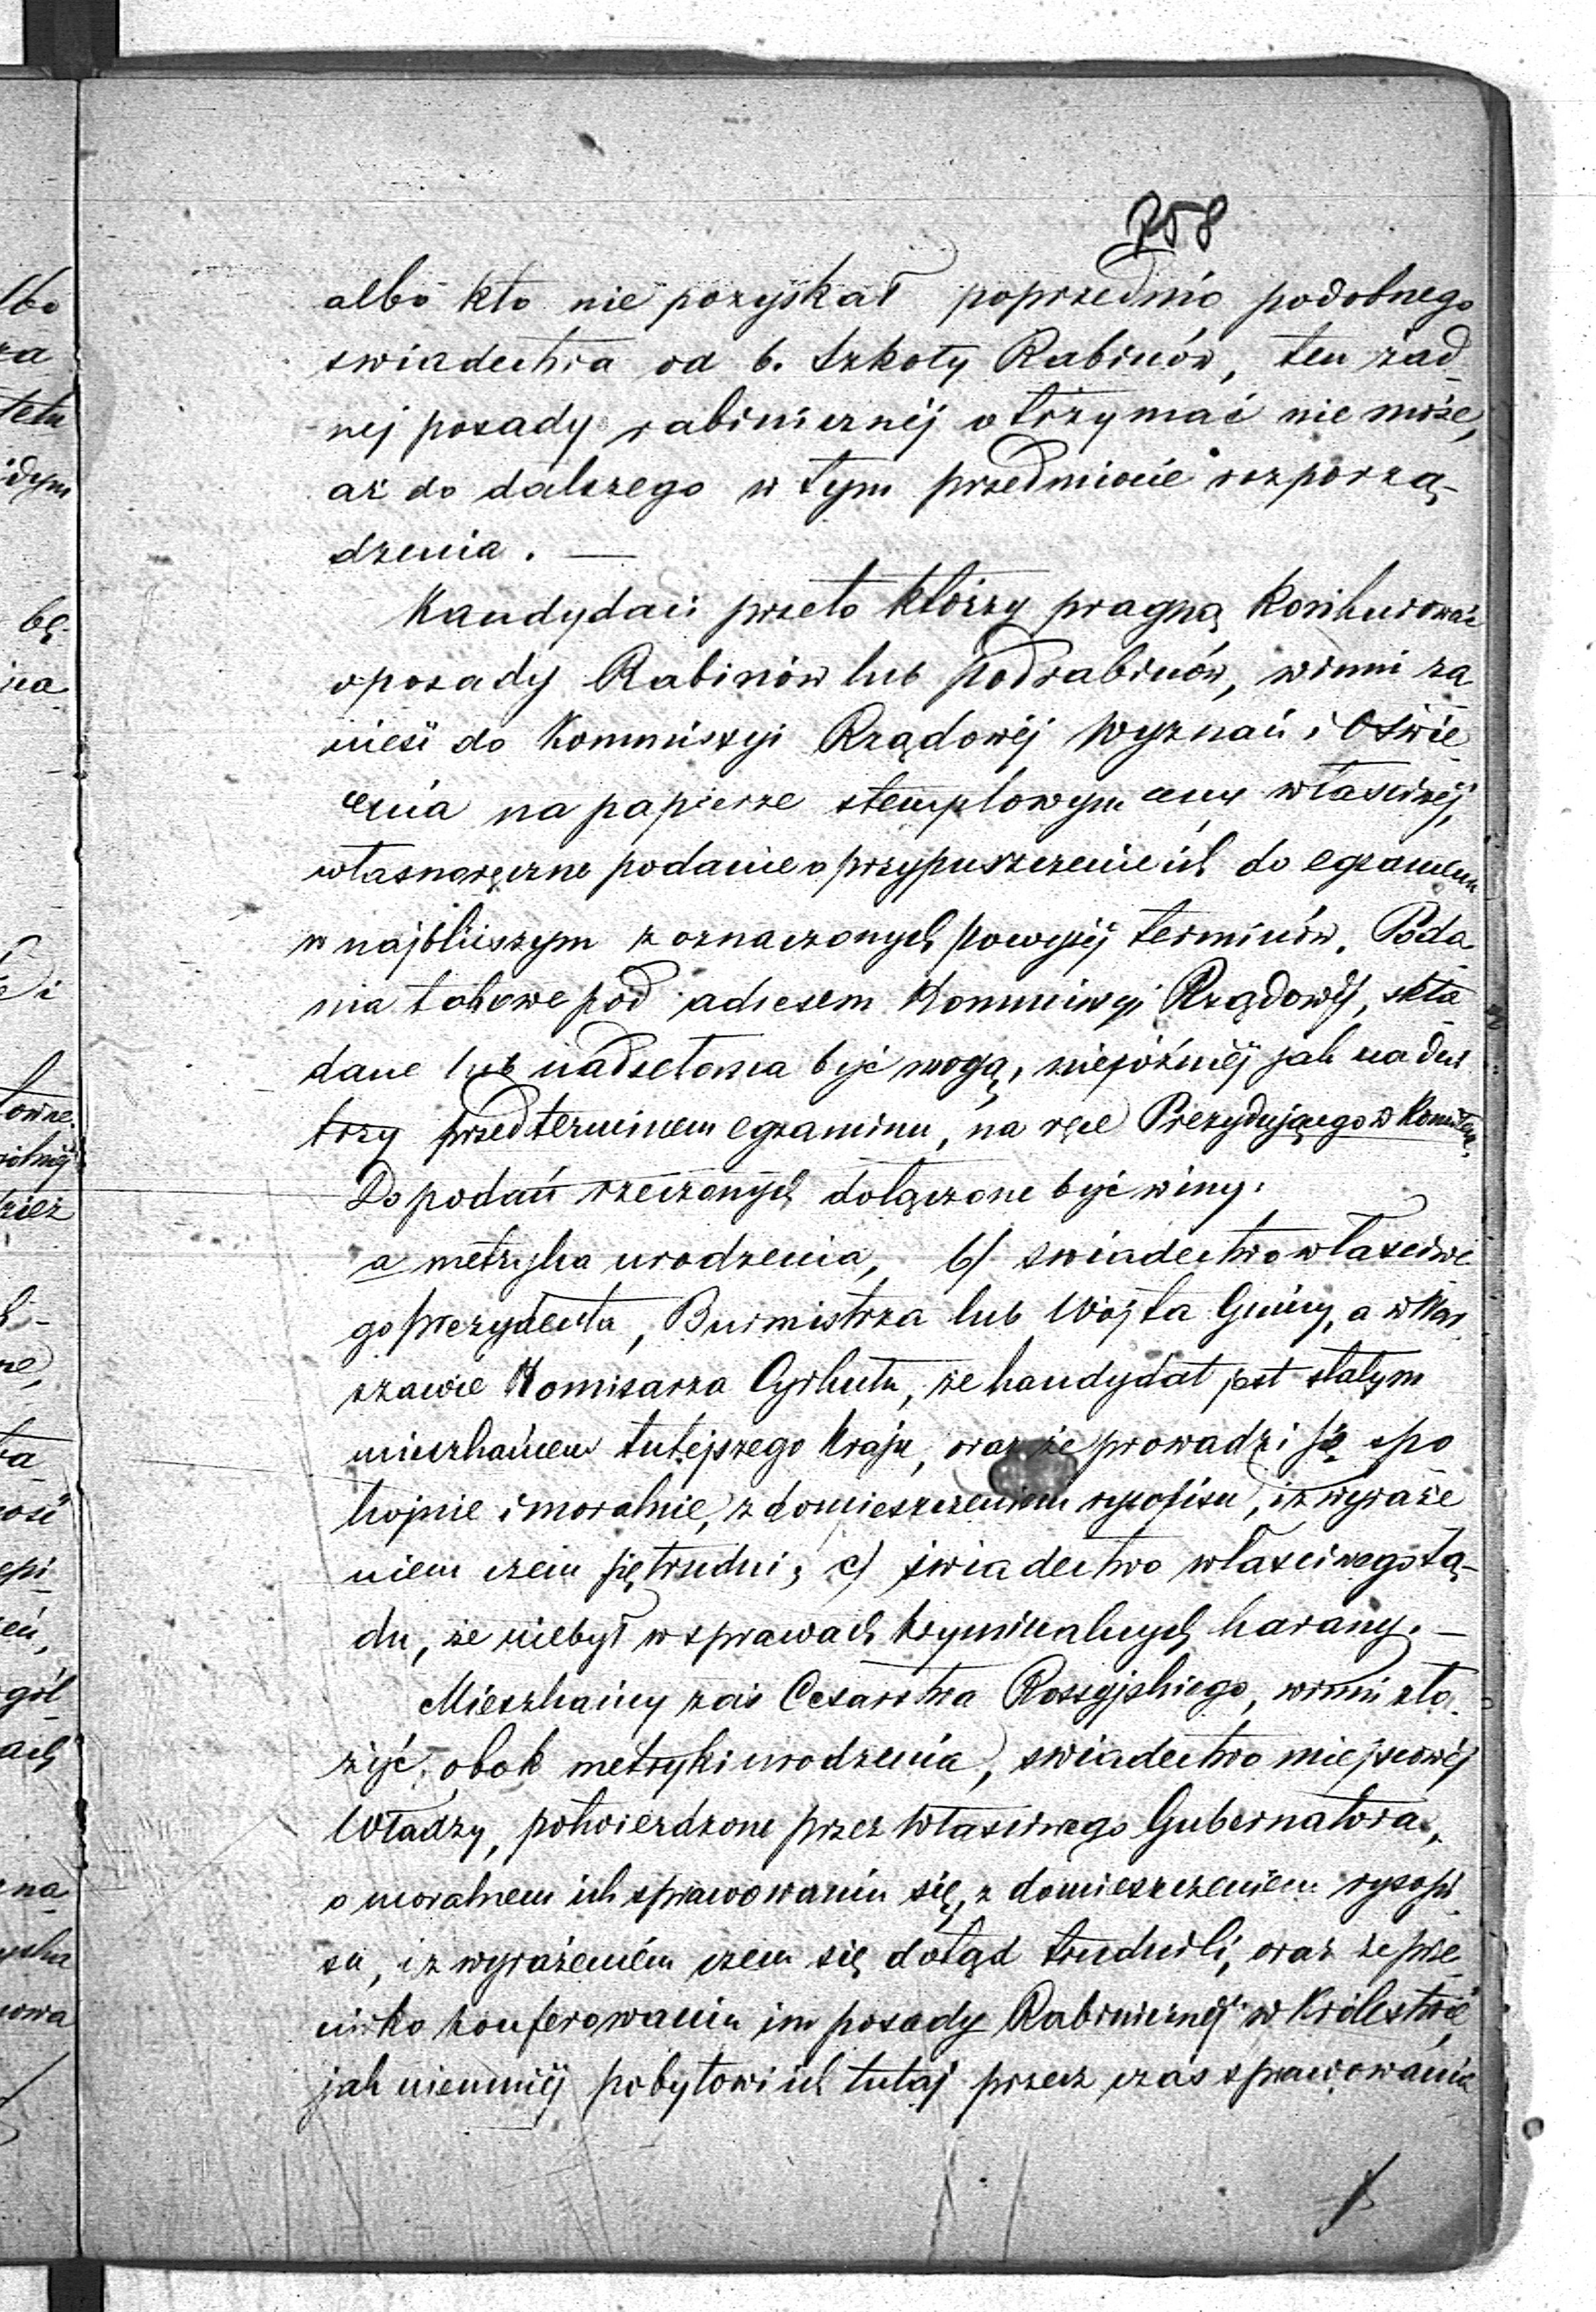 758
albo kto nie pozyskał poprzednio podobnego
swiadectwa od b. Szkoły Rabinów, ten żad_
nej posady rabinicznéj otrzymać nie może,
aż do dalszego w tym przedmiocie rozporzą-
dzenia. —
Kandydaci przeto którzy pragną konkurować
o posady Rabinów lub podrabinów, winni za_
nieść do Kommissyi Rządowéj Wyznań i Oświe_
cenia na papierze stemplowym ceny właściwéj,
własnoręczne podanie o przypuszczenie ich do egzaminu
w najbliższym z oznaczonych powyżéj terminów. Poda_
nia takowe pod adresem Kommissyi Rządowéj, skła_
dane lub nadsełane być mogą, niepóźniéj jak na dni
trzy przed terminem egzaminu, na ręce Prezydującego w Komitecie.
Do podań rzeczonych dołączone być winny:
a metryka urodzenia, b/ swiadectwo właściwe_
go prezydenta, Burmistrza lub Wójta Gminy, a w War_
szawie Komisarza Cyrkułu, że kandydat jest stałym
mieszkańcem tutejszego kraju, oraz że prowadzi się spo_
kojnie i moralnie, z domieszczeniem rysopisu, i z wyraże_
niem czem się trudni; c/ świadectwo właściwego Są-
du, że niebył w sprawach kryminalnych karany. —
Mieszkańcy zaś Cesarstwa Rossyjskiego, winni zło_
żyć, obok metryki urodzenia, swiadectwo miejscowéj
Władzy, potwierdzone przez właściwego Gubernatora,
o moralnem ich sprawowaniu się, z domieszczeniem rysopi_
su, i z wyrażeniem czem się dotąd trudnili, oraz że prze_
ciwko konferowaniu im posady Rabinicznéj w Królestwie,
jak niemniéj pobytowi ich tutaj przez czas sprawowania